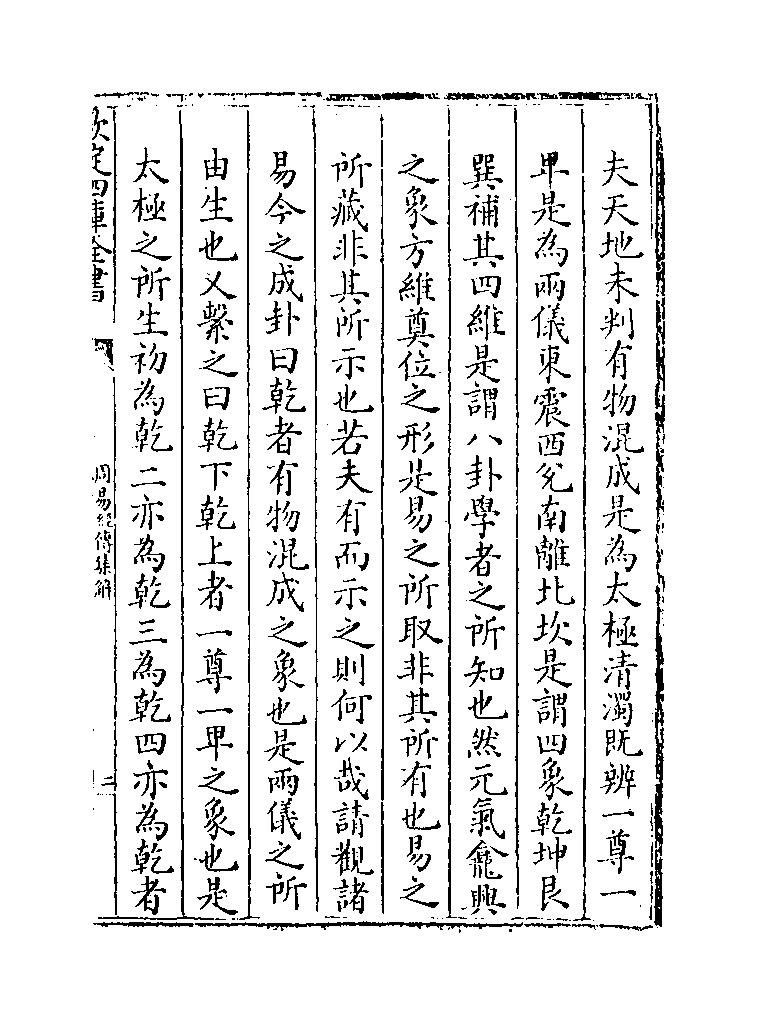 夫天地未判有物混成是為太極清濁既辨一尊一
卑是為兩儀東震西兊南離北坎是謂四象乾坤艮
巽補其四維是謂八卦學者之所知也然元氣龕興
之象方維奠位之形是易之所取非其所有也易之
所藏非其所示也若夫有而示之則何以哉請觀諸
易今之成卦曰乾者有物混成之象也是兩儀之所
由生也又繫之曰乾下乾上者一尊一卑之象也是
太極之所生初為乾二亦為乾三為乾四亦為乾者
欽定四庫全書
周易經傳集解
二